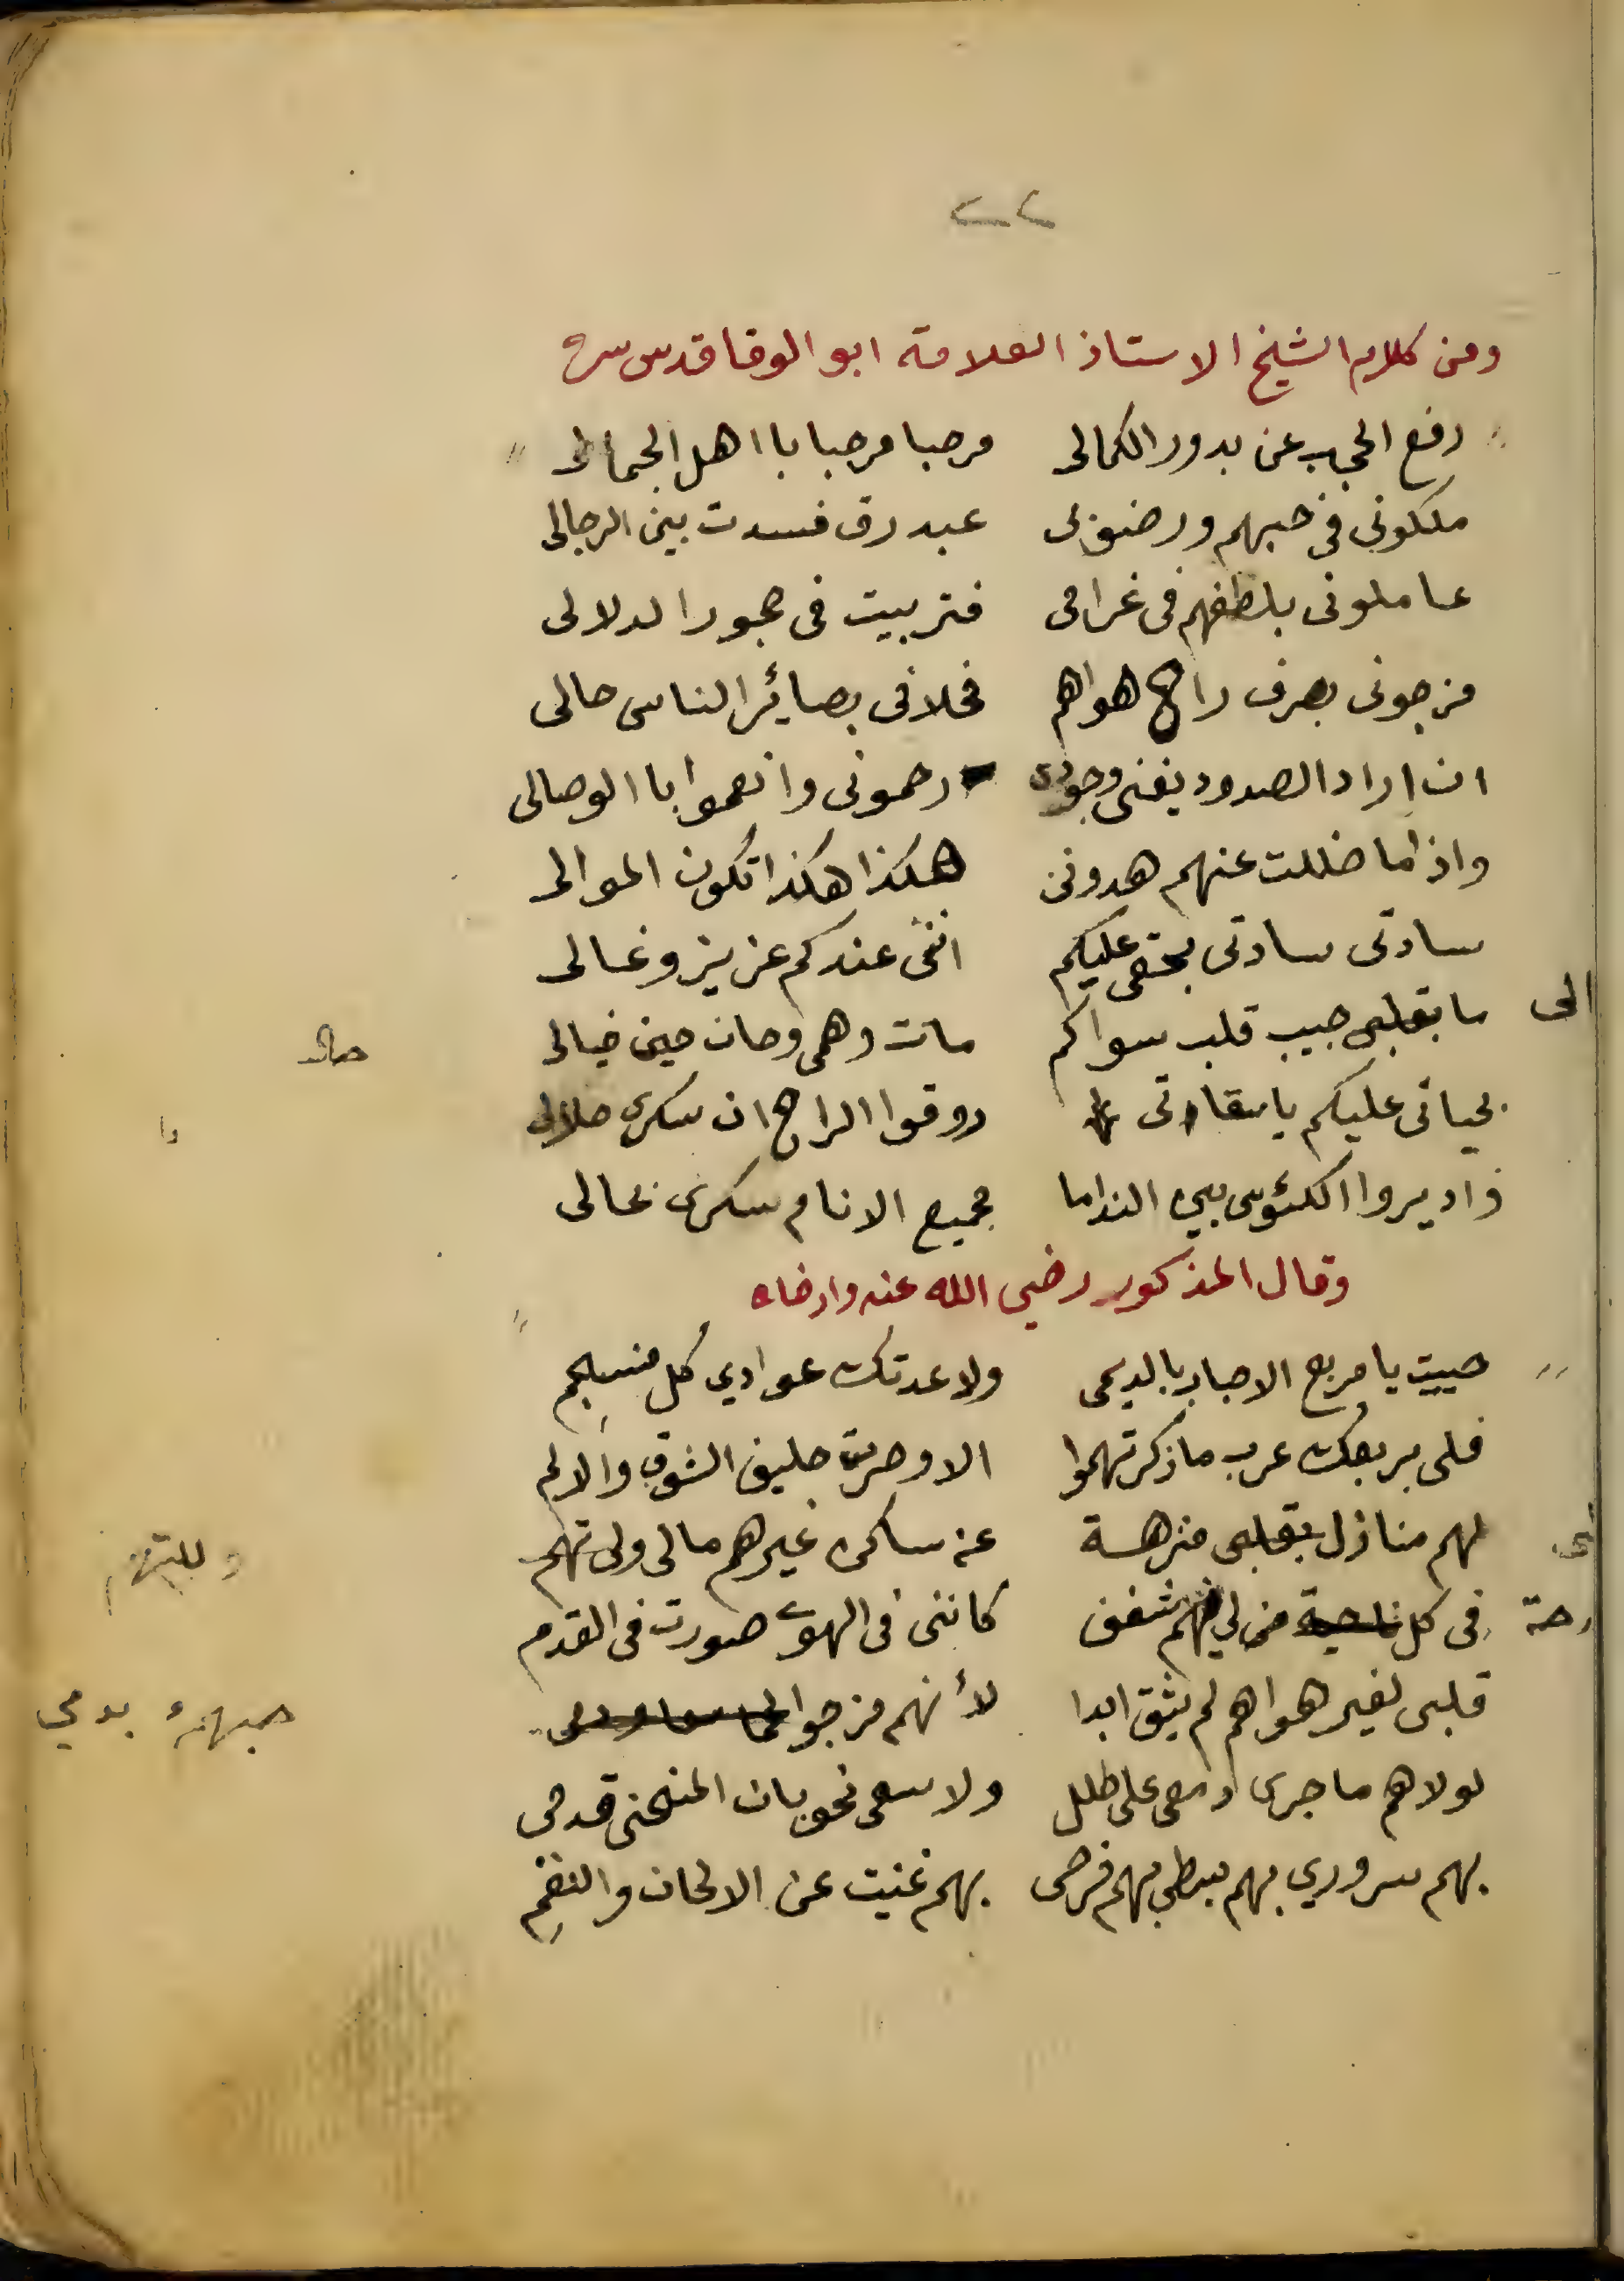 ٢٢
ومن كلام الشيخ الاستاذ العلامة ابو الوفا قدس سره
رفع الحجب عن بدور الكمالى مرحبا مرحبا با اهل الجمالى
ملكونى فى حبهم ورضونى عبد رق فسدت بين الرجالى
عاملونى بلطفهم فى غرامى فتربيت فى حجور الدلالى
مزجونى بصرف راح هواهم فحلا فى بصائر الناس حالى
ان اراد الصدود يفنى وجودى رحمونى وانعموا با الوصالى
واذا ما ضللت عنهم هدونى هكذا هكذا تكون الموالى
سادتى سادتى بحقى عليكم اننى عندكم عزيز وغالى
ما بقلبى حبيب قلب سواكم مات وهمى وحان حين خيالى
الى
حال
بحياتى عليكم يا سقاتى روقوا الراح ان سكرى حلالى
وا
واديروا الكئوس بين النداما فجميع الانام سكرى بحالى
وقال المذكور رضي الله عنه وارضاه
حييت يا مربع الاحباب بالديمى ولا عدتك عوادي كل منسجم
فلى بربعك عرب ما ذكرتهموا الا وصرت حليف الشوق والالم
لهم منازل بقلبى منزهة عن ساكن غيرهم مالى ولى تهم
فى كل ناحية من لي فيهم شغف كاننى فى الهوى صورت فى القدم
رحة
قلبى لغير هواهم لم يثق ابدا لأنهم مزجوا
حبهمُ بدمي
لولاهم ما جرى دمعى على طلل ولا سعى نحو بان المنحنى قدمى
بهم سروري بهم بسطى بهم فرحى بهم غنيت عن الالحان والنغم